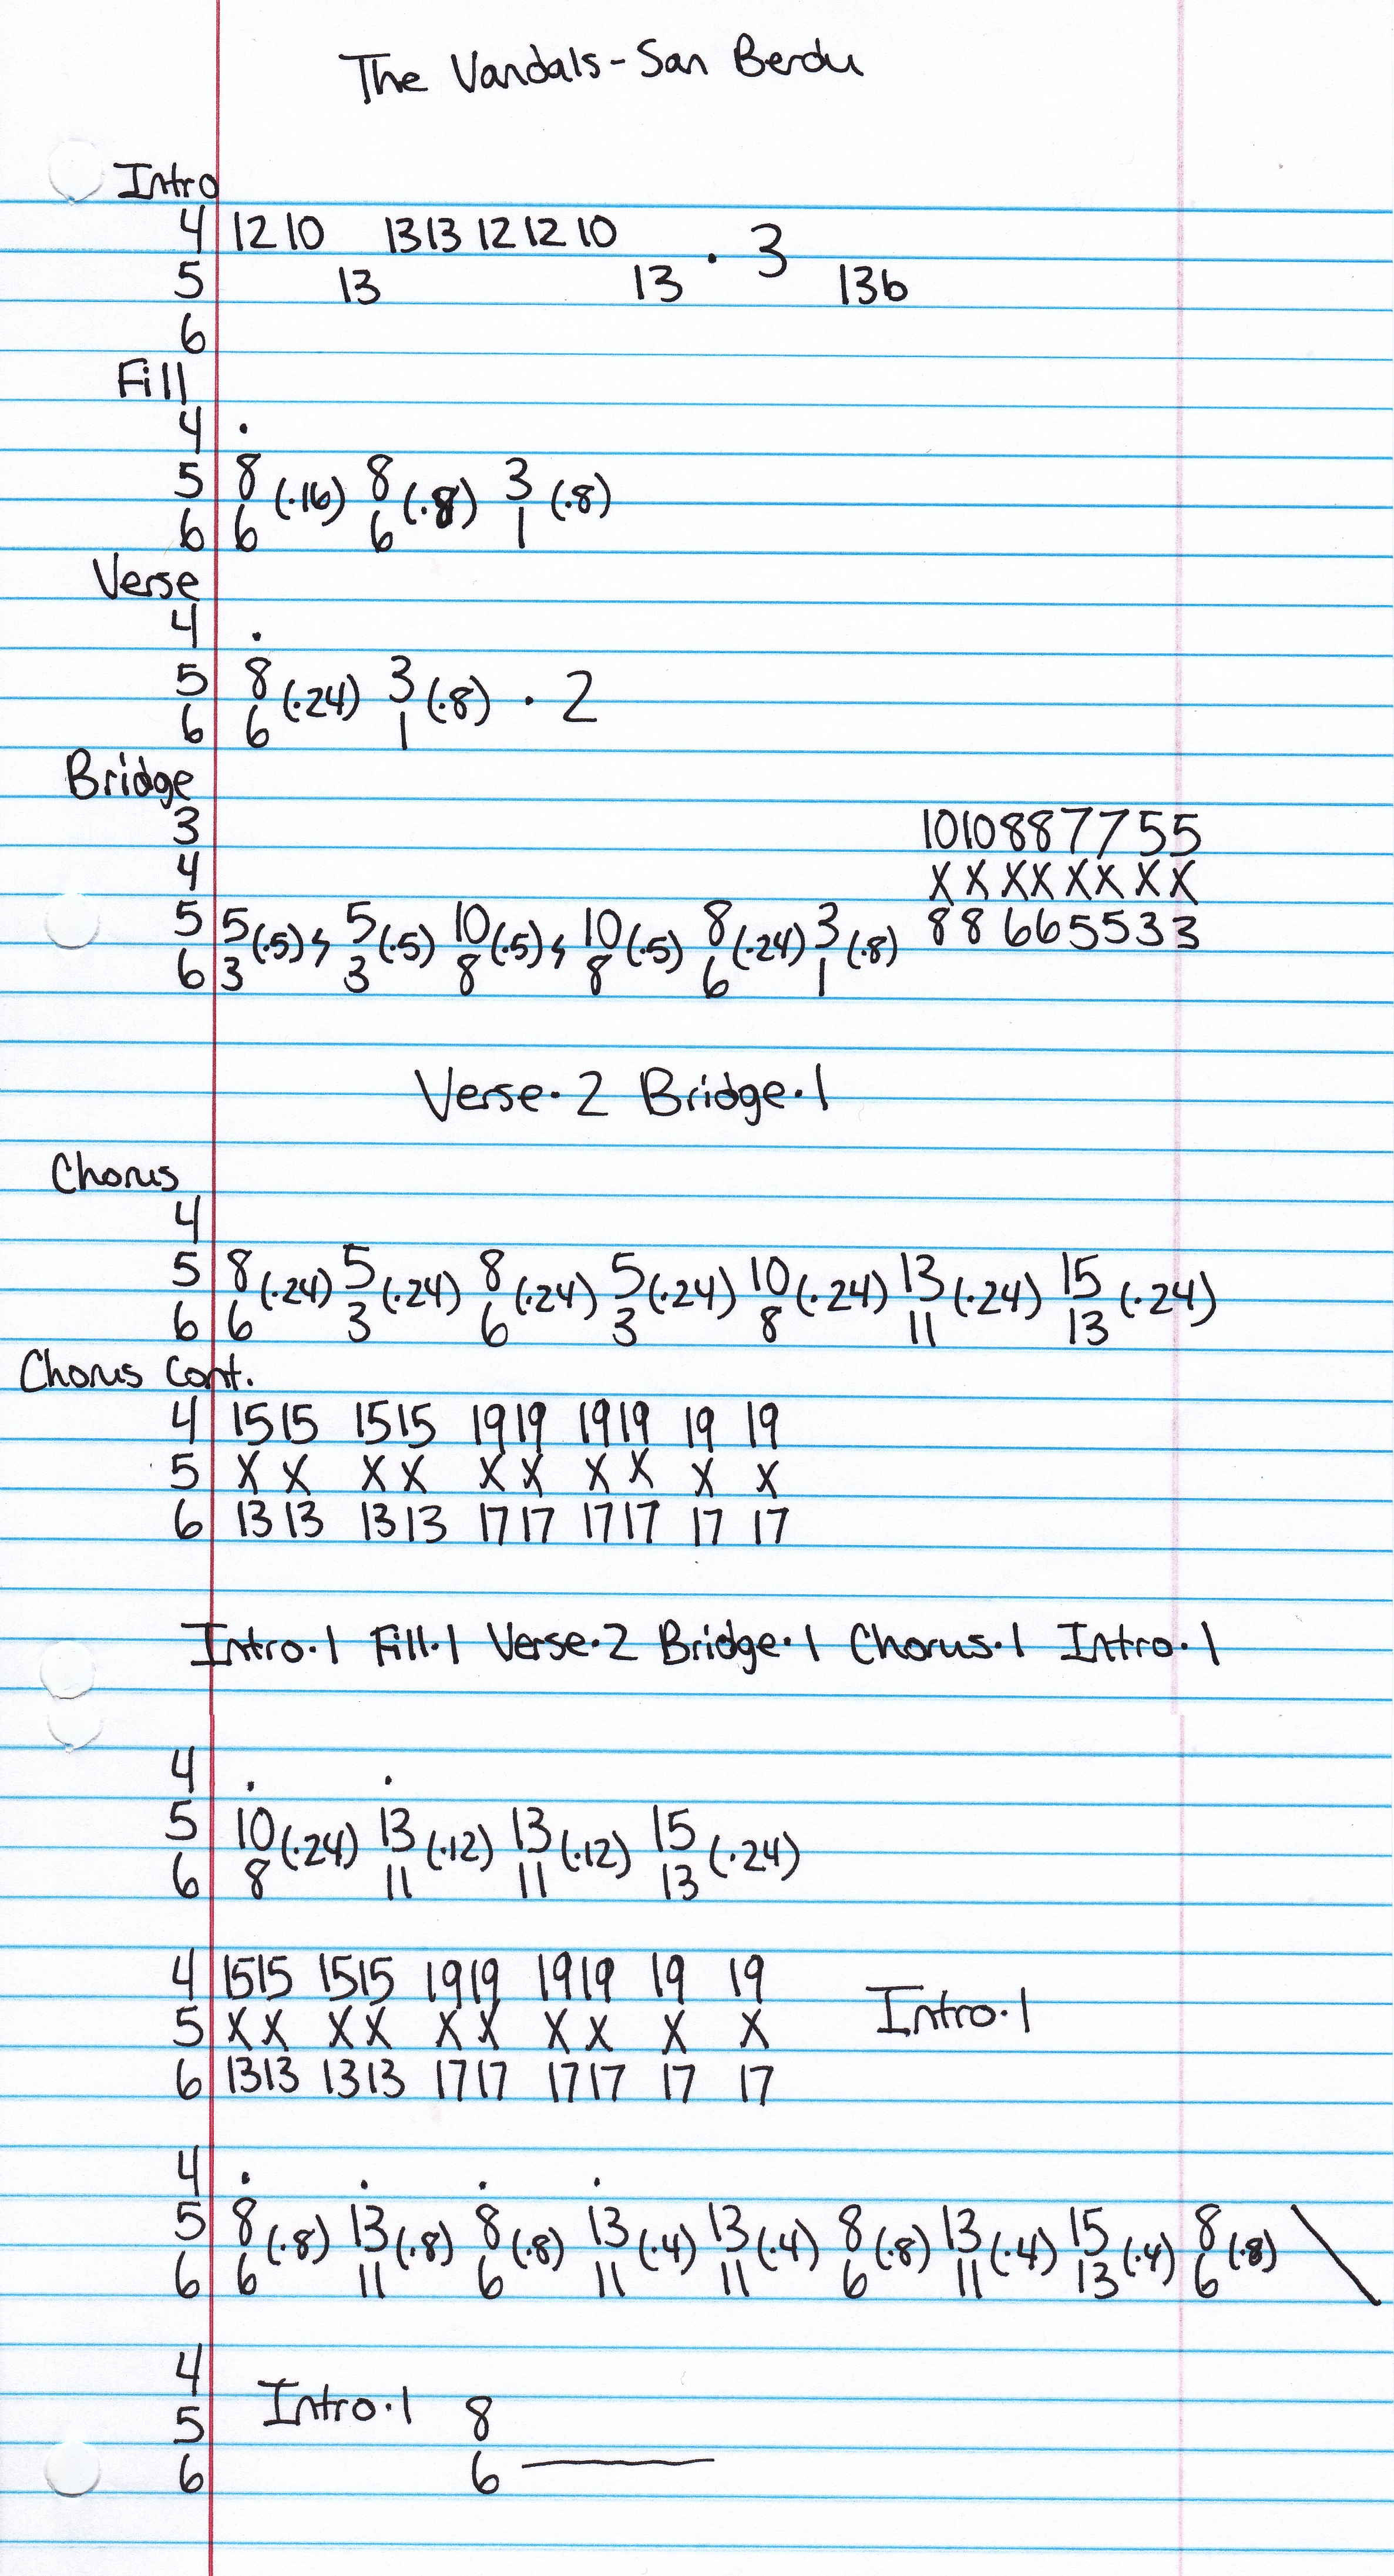 The Vandals-San Berdu
Intro
4 12 10 13 13 12 12 10
· 3
5 13 13 13b
6
Fill
4 .
5 8 (·16) 8 (·8) 3 (·8)
6 6 6 1
Verse
4 .
5 8 (·24) 3 (·8) · 2
6 6 1
Bridge
3 10 10 8 8 7 7 5 5
4 X X X X X X X X
5 5 (·5) 5 (·5) 10 (·5) 10 (·5) 8 (·24) 3 (·8) 8 8 6 6 5 5 3 3
6 3 3 8 8 6 1
Verse·2 Bridge·1
Chorus
4
5 8 (·24) 5 (·24) 8 (·24) 5 (·24) 10 (·24) 13 (·24) 15 (·24)
6 6 3 6 3 8 11 13
Chorus Cont.
4 15 15 15 15 19 19 19 19 19 19
5 X X X X X X X X X X
6 13 13 13 13 17 17 17 17 17 17
Intro·1 Fill·1 Verse·2 Bridge·1 Chorus·1 Intro·1
4 . .
5 10 (·24) 13 (·12) 13 (·12) 15 (·24)
6 8 11 11 13
4 15 15 15 15 19 19 19 19 19 19
Intro·1
5 X X X X X X X X X X
6 13 13 13 13 17 17 17 17 17 17
4 . . . .
5 8 (·8) 13 (·8) 8 (·8) 13 (·4) 13 (·4) 8 (·8) 13 (·4) 15 (·4) 8 (·8) \
6 6 11 6 11 11 6 11 13 6
4
5 Intro·1 8
6 6 —